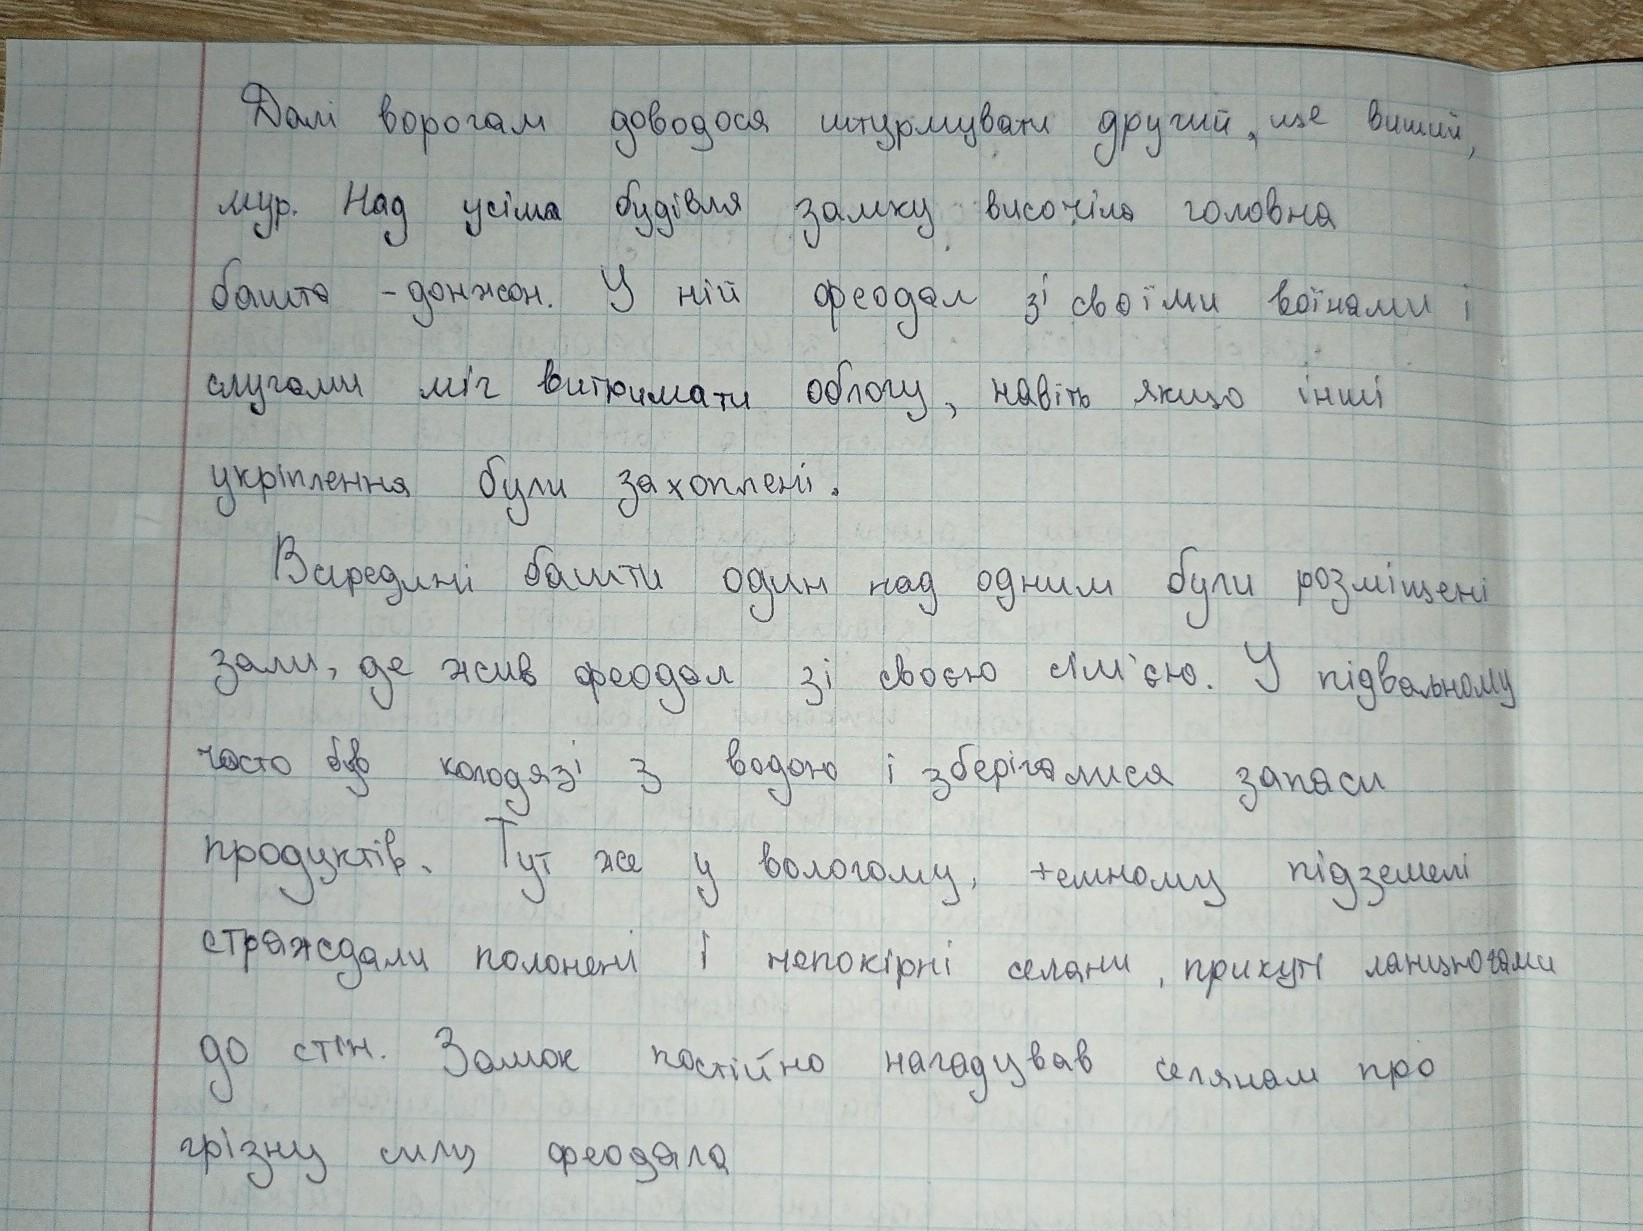 Далі ворогам доводося штурмувати другий, ще вищий,
мур. Над усіма будівля замку височіла головна
башта - донжон. У ній феодал зі своїми воїнами і
слугами міг витримати облогу, навіть якщо інші
укріплення були захоплені.
Всередині башти один над одним були розміщені
зали, де жив феодал зі своєю сім'єю. У підвальному
часто був колодязі з водою і зберігалися запаси
продуктів. Тут же у вологому, темному підземелі
страждали полонені і непокірні селани, прикуті ланцюгами
до стін. Замок постійно нагадував селянам про
грізну силу феодала